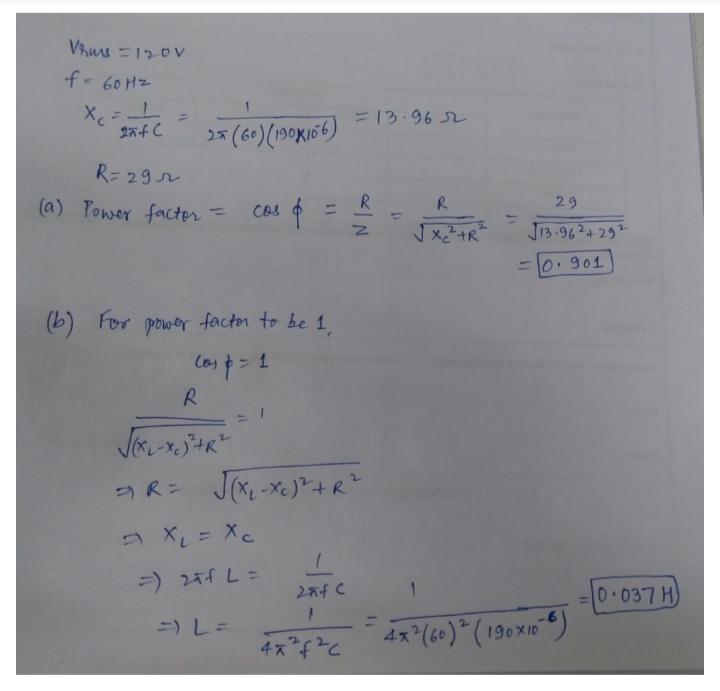 Vrms = 120V
f = 60Hz
Xc = 1/(2πfC) = 1/(2π(60)(190×10^-6)) = 13.96 Ω
R = 29Ω
(a) Power factor = cos ϕ = R/Z = R/√(Xc²+R²) = 29/√(13.96²+29²)
= 0.901
(b) For power factor to be 1,
cos ϕ = 1
R/√((XL-Xc)²+R²) = 1
⇒ R = √((XL-Xc)²+R²)
⇒ XL = Xc
⇒ 2πfL = 1/(2πfC)
⇒ L = 1/(4π²f²C) = 1/(4π²(60)²(190×10^-6)) = 0.037 H